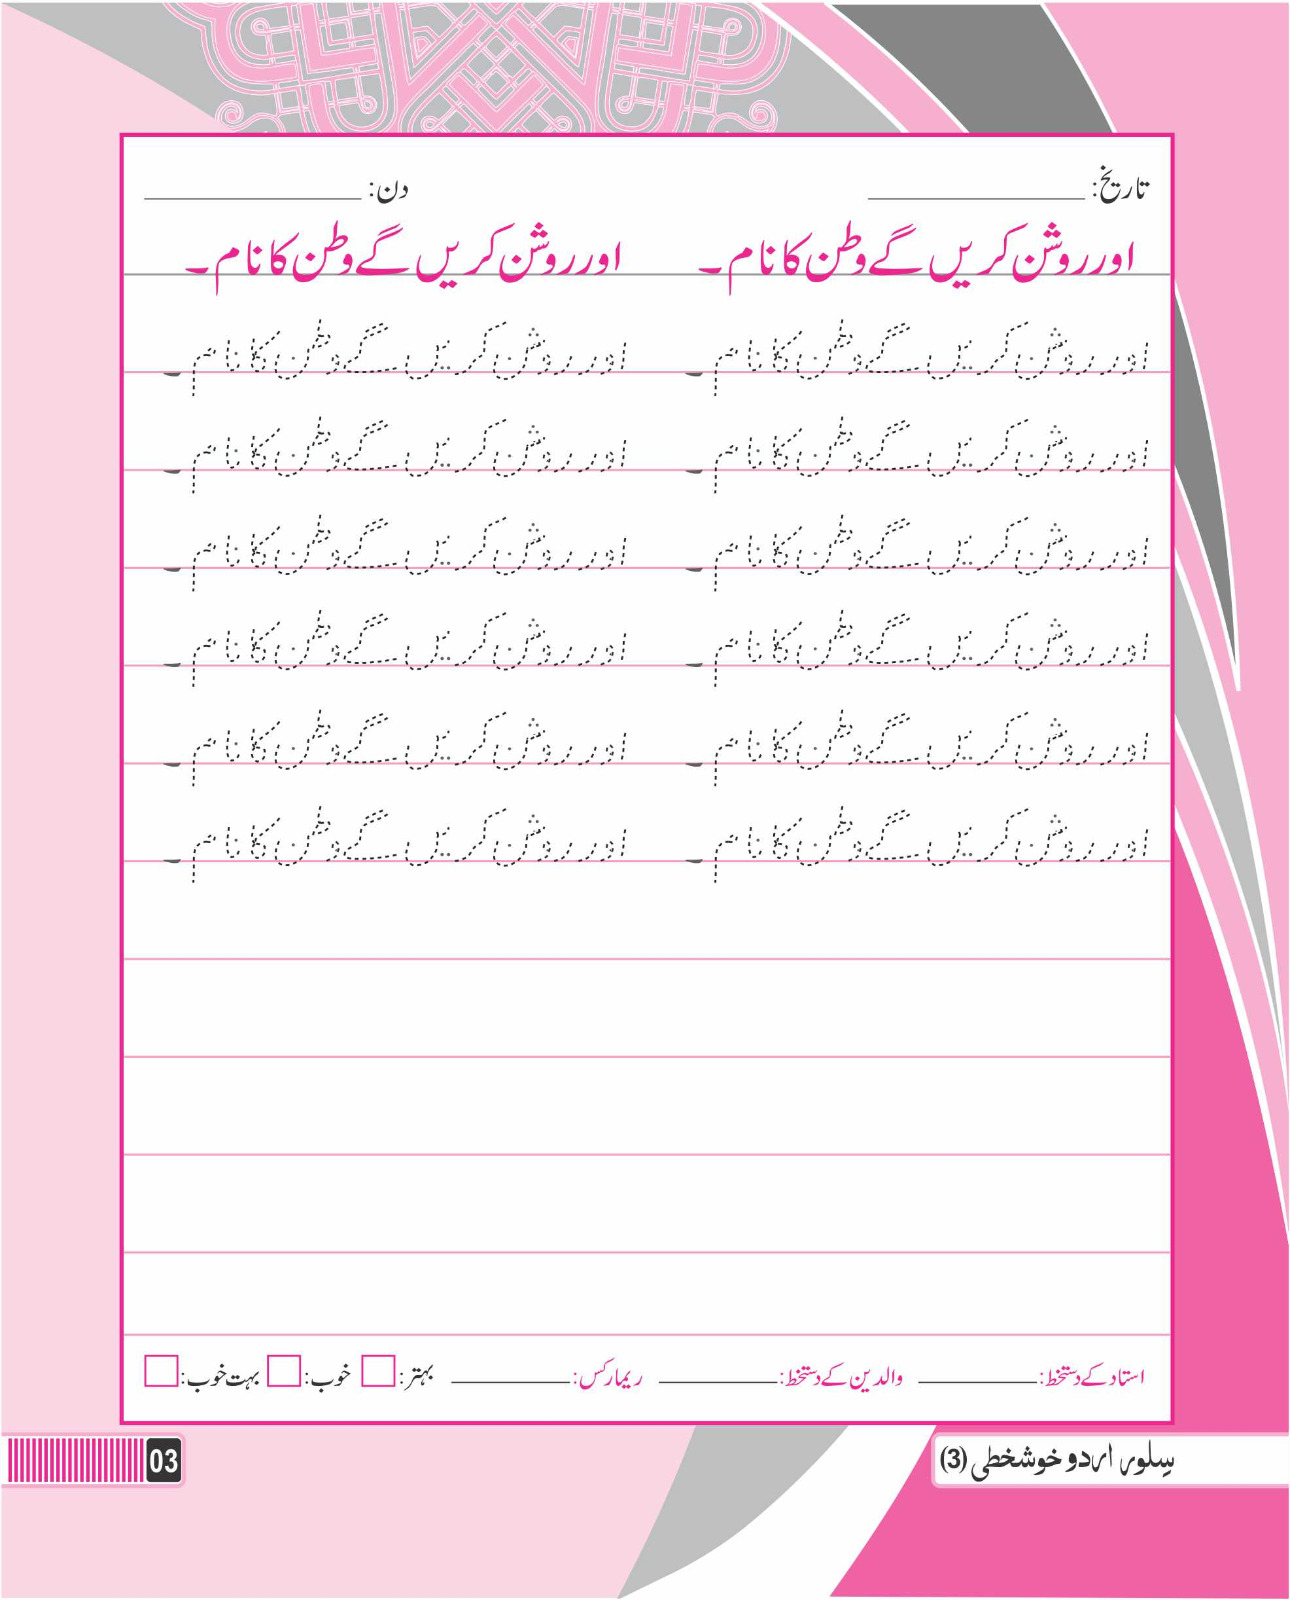 تاریخ: ____________ دن: ____________
اور روشن کریں گے وطن کا نام۔ اور روشن کریں گے وطن کا نام۔
اور روشن کریں گے وطن کا نام۔ اور روشن کریں گے وطن کا نام۔
اور روشن کریں گے وطن کا نام۔ اور روشن کریں گے وطن کا نام۔
اور روشن کریں گے وطن کا نام۔ اور روشن کریں گے وطن کا نام۔
اور روشن کریں گے وطن کا نام۔ اور روشن کریں گے وطن کا نام۔
اور روشن کریں گے وطن کا نام۔ اور روشن کریں گے وطن کا نام۔
اور روشن کریں گے وطن کا نام۔ اور روشن کریں گے وطن کا نام۔
استاد کے دستخط: ________ والدین کے دستخط: ________ ریمارکس: ________ بہتر: خوب: بہت خوب:
سلور اردو خوشخطی (3)
03